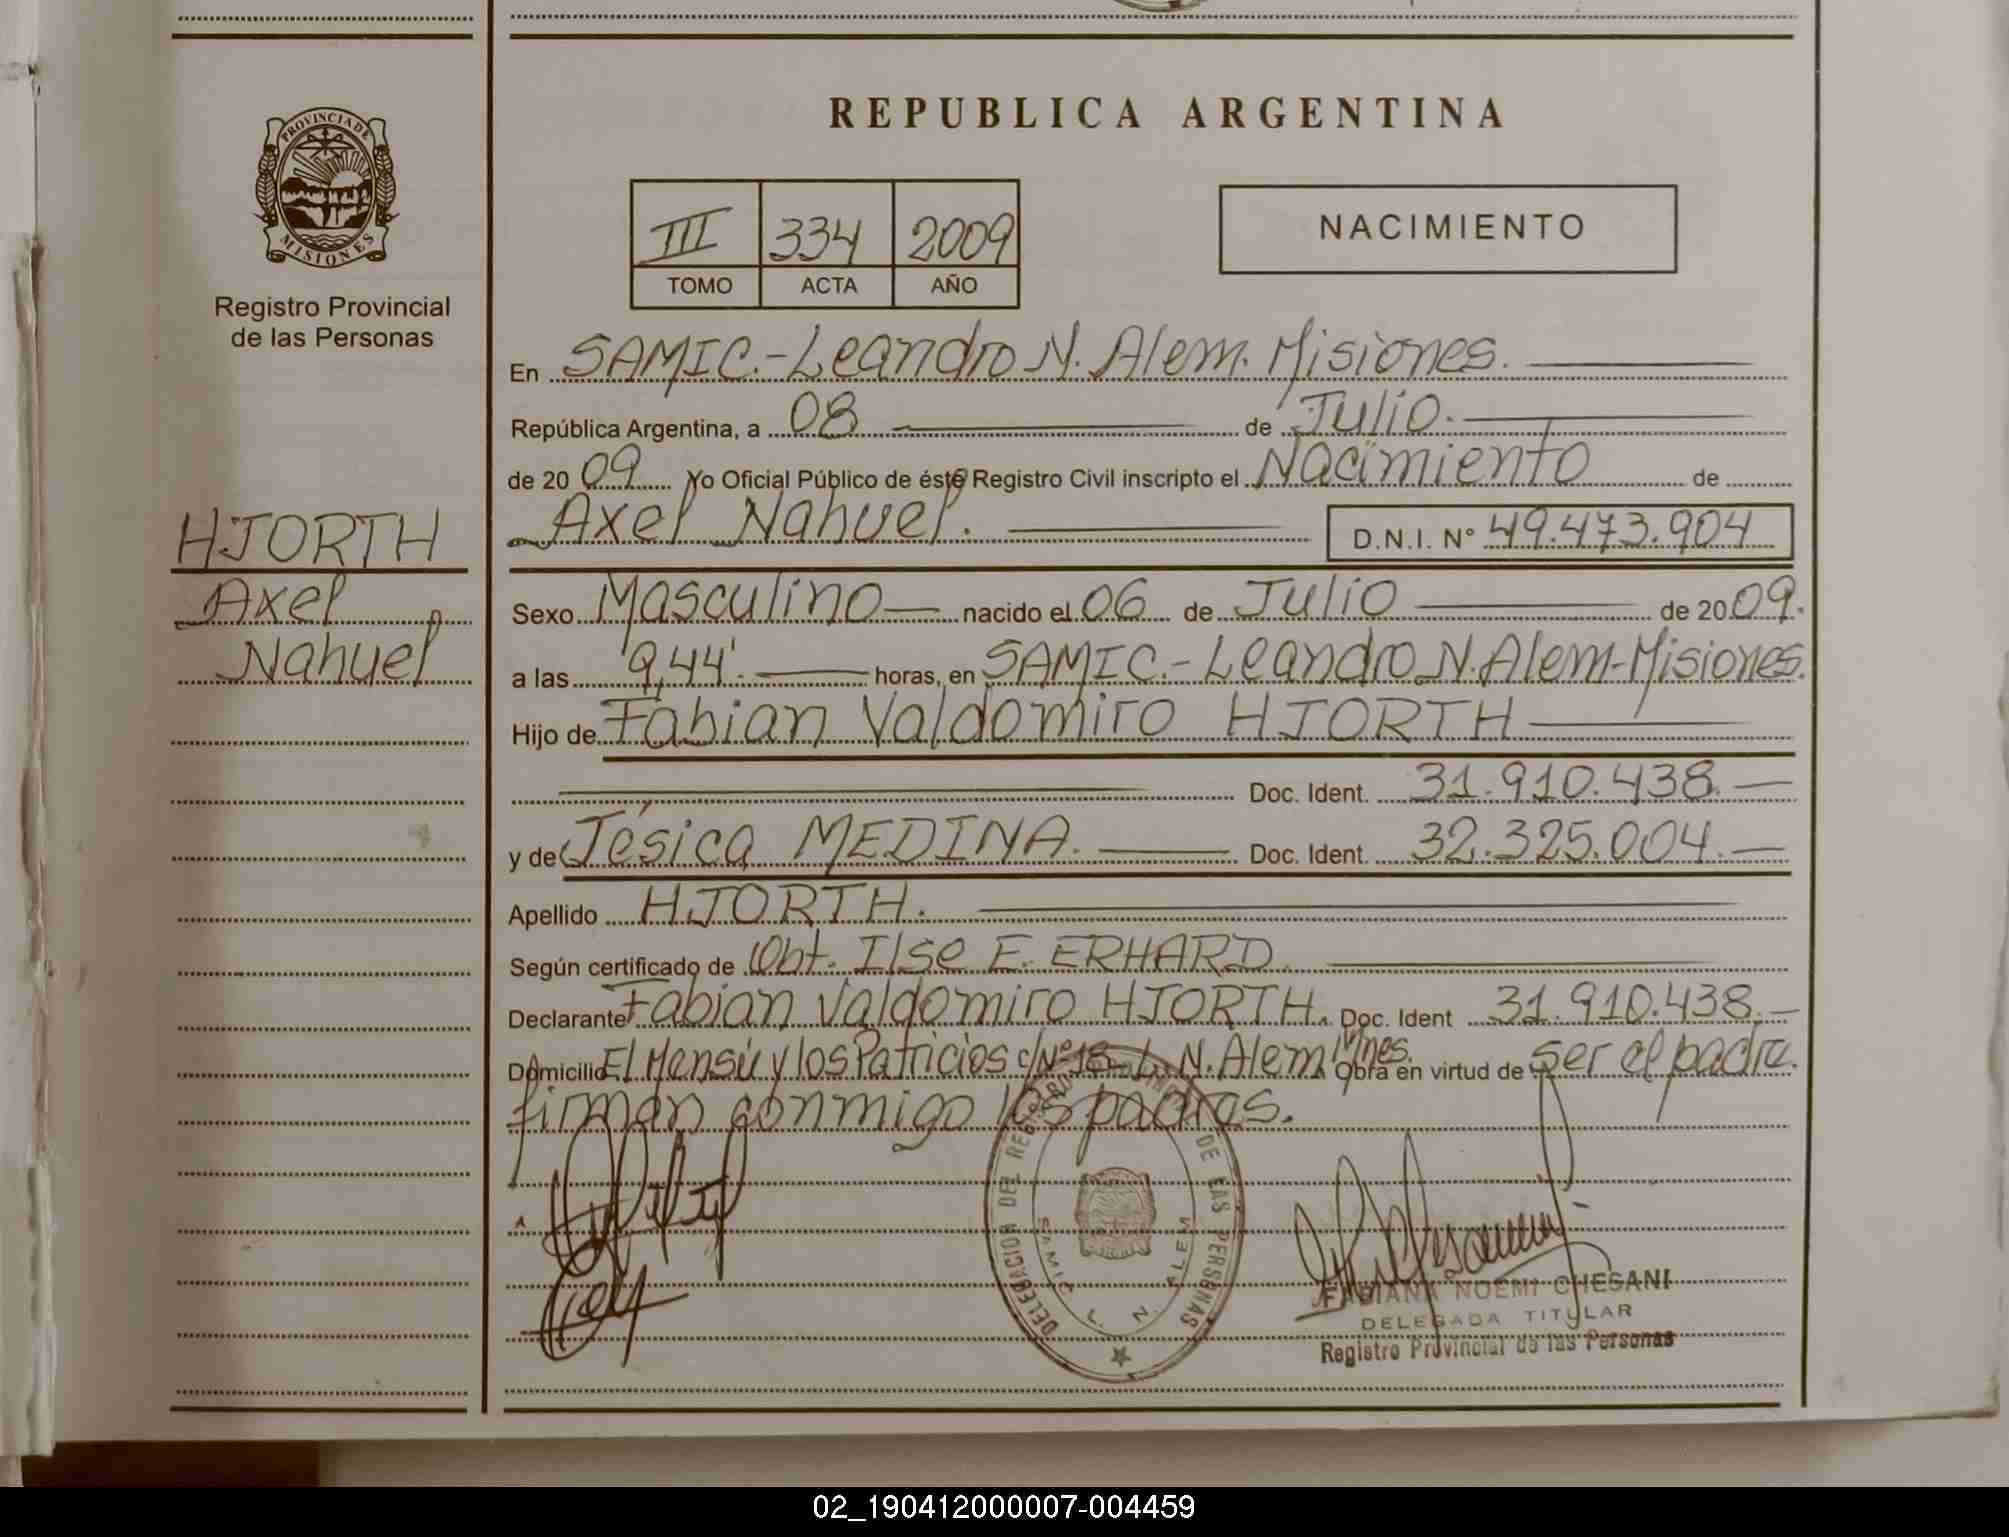 REPUBLICA ARGENTINA
PROVINCIA DE
MISIONES
Registro Provincial
de las Personas
III 334 2009
TOMO ACTA AÑO
NACIMIENTO
En SAMIC.-Leandro N. Alem. Misiones.
República Argentina, a 08 de Julio.
de 2009 Yo Oficial Público de éste Registro Civil inscripto el Nacimiento de
HJORTH
Axel
Nahuel
Axel Nahuel. D.N.I. N° 49.473.904
Sexo Masculino nacido el 06 de Julio de 2009.
a las 9,44'. horas, en SAMIC.-Leandro N. Alem-Misiones.
Hijo de Fabian Valdomiro HJORTH
Doc. Ident. 31.910.438.
y de Jésica MEDINA. Doc. Ident. 32.325.004.
Apellido HJORTH.
Según certificado de Obt. Ilse E. ERHARD
Declarante Fabian Valdomiro HJORTH. Doc. Ident 31.910.438.
Domicilio El Mensú y los Patricios c/Nº 18 L. N. Alem Mnes. Obra en virtud de ser el padre.
firman conmigo los padres.
DELEGACION DEL REGISTRO PROVINCIAL DE LAS PERSONAS
SAMIC L. N. ALEM
FABIANA NOEMI CHESANI
DELEGADA TITULAR
Registro Provincial de las Personas
02_190412000007-004459